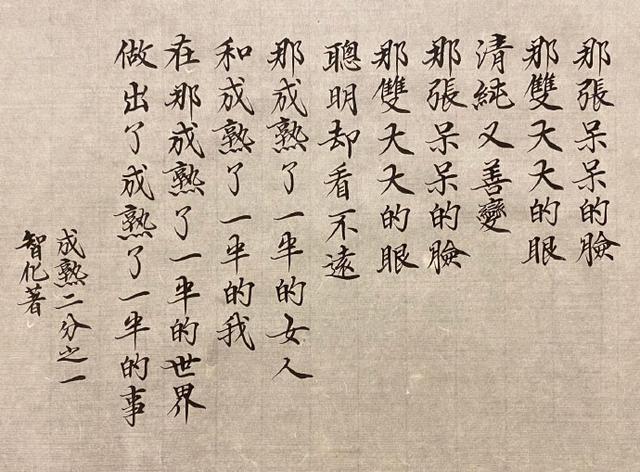 那張呆呆的臉
那雙大大的眼
清純又善變
那張呆呆的臉
那雙大大的眼
聰明却看不遠
那成熟了一半的女人
和成熟了一半的我
在那成熟了一半的世界
做出了成熟了一半的事
成熟二分之一
智化著